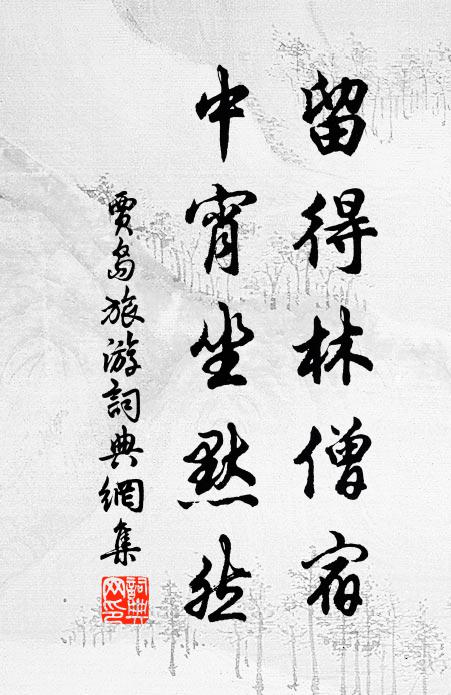 留得林僧宿
中宵坐默然
賈島旅游詞典網集
詞典